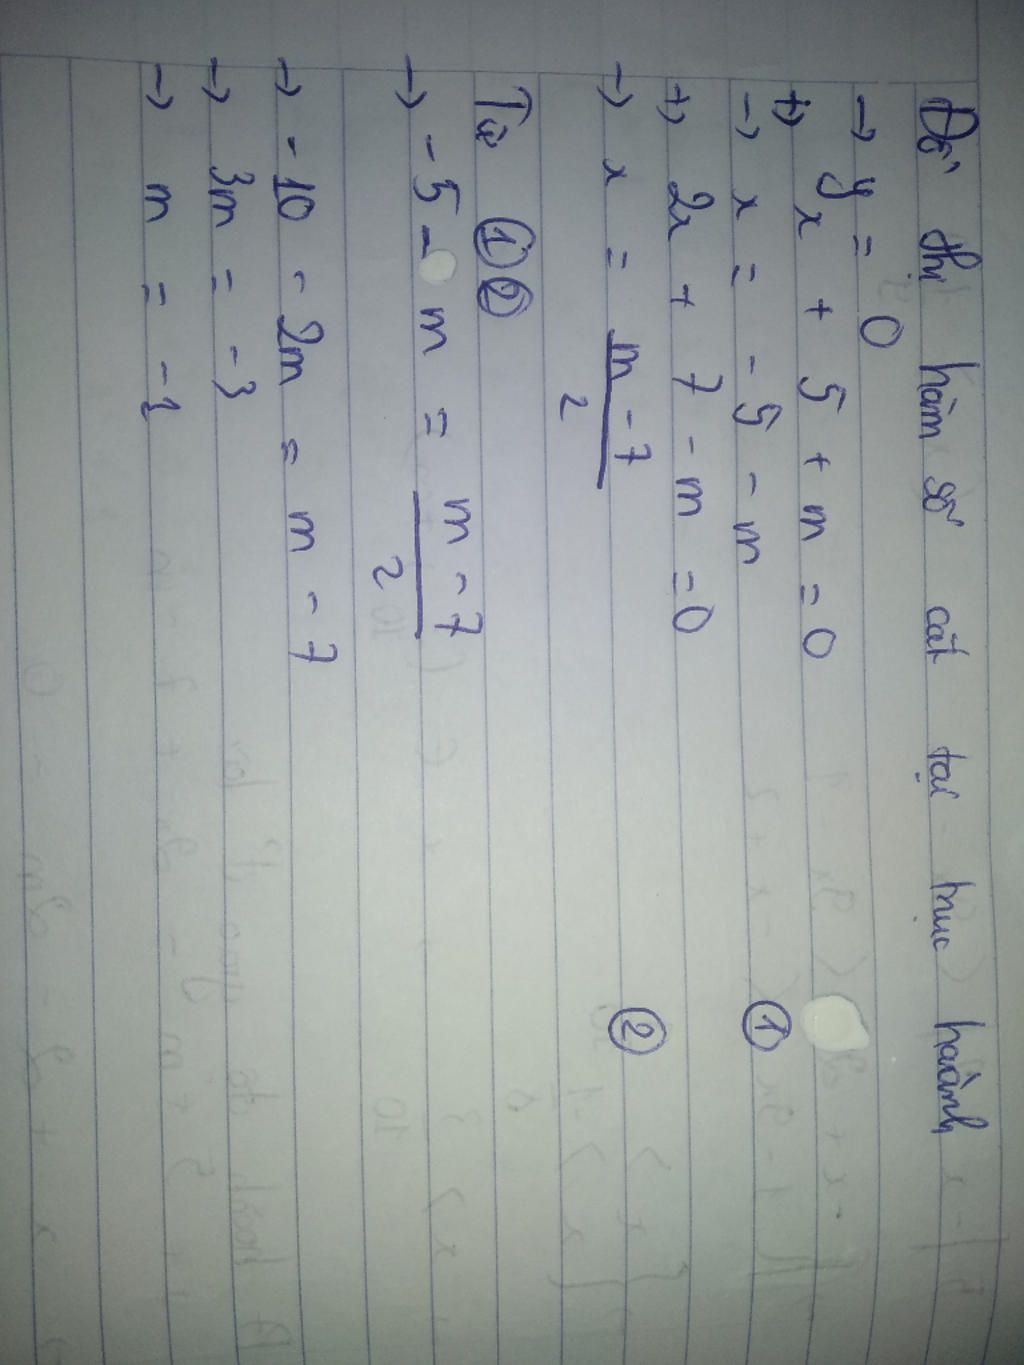 Đồ thị hàm số cắt tại trục hoành
→ y = 0
+) x + 5 + m = 0
→ x = -5 - m ①
+) 2x + 7 - m = 0
→ x = m - 7 / 2 ②
Từ ① ②
→ -5 - m = m - 7 / 2
→ -10 - 2m = m - 7
→ 3m = -3
→ m = -1